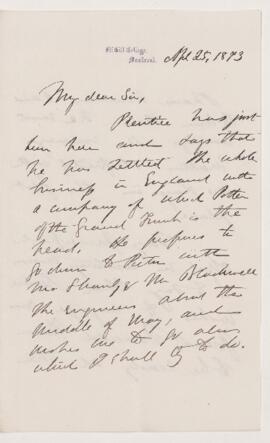 McGill College,
Montreal.
Apl 25, 1873
My dear Sir,
Prentice has just
been here and says that
he has settled the whole
business in England with
a company of which Potter
of the Grand Trunk is the
head. He proposes to
go down to Pictou with
Mr Shanly & Mr Blackwell
the Engineers about the
middle of May, and
wishes me to go also
which I shall try to do.